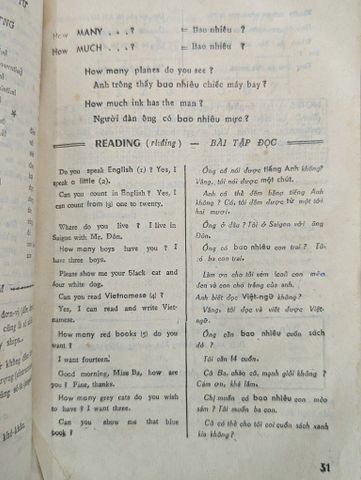 How MANY . . . ? = Bao nhiêu ?
How MUCH . . . ? = Bao nhiêu ?
How many planes do you see ?
Anh trông thấy bao nhiêu chiếc máy bay ?
How much ink has the man ?
Người đàn ông có bao nhiêu mực ?
READING (ri:đing) — BÀI TẬP ĐỌC
Do you speak English (1) ? Yes, I
speak a little (2).
Can you count in English ? Yes, I
can count from (3) one to twenty.
Where do you live ? I live in
Saigon with Mr. Đôn.
How many boys have you ? I
have three boys.
Please show me your black cat and
four white dog.
Can you read Vietnamese (4) ?
Yes, I can read and write Viet-
namese.
How many red books (5) do you
want ?
I want fourteen.
Good morning, Miss Ba, how are
you ? Fine, thanks.
How many grey cats do you wish
to have ? I want three.
Can you show me that blue
book ?
Ông có nói được tiếng Anh không?
Vâng, tôi nói được một chút.
Anh có thể đếm bằng tiếng Anh
không ? Có, tôi đếm được từ một tới
hai mươi.
Ông ở đâu ? Tôi ở Saigon với ông
Đôn.
Ông có bao nhiêu con trai ? Tôi
có ba con trai.
Làm ơn cho tôi xem con mèo
đen và con chó trắng của anh.
Anh biết đọc Việt-ngữ không ?
Vâng, tôi đọc và viết được Việt-
ngữ.
Ông cần bao nhiêu cuốn sách
đỏ ?
Tôi cần 14 cuốn.
Cô Ba, chào cô, mạnh giỏi không ?
Cám ơn, khá lắm.
Chị muốn có bao nhiêu con mèo
xám ? Tôi muốn ba con.
Cô có thể cho tôi coi cuốn sách xanh
kia không ?
31